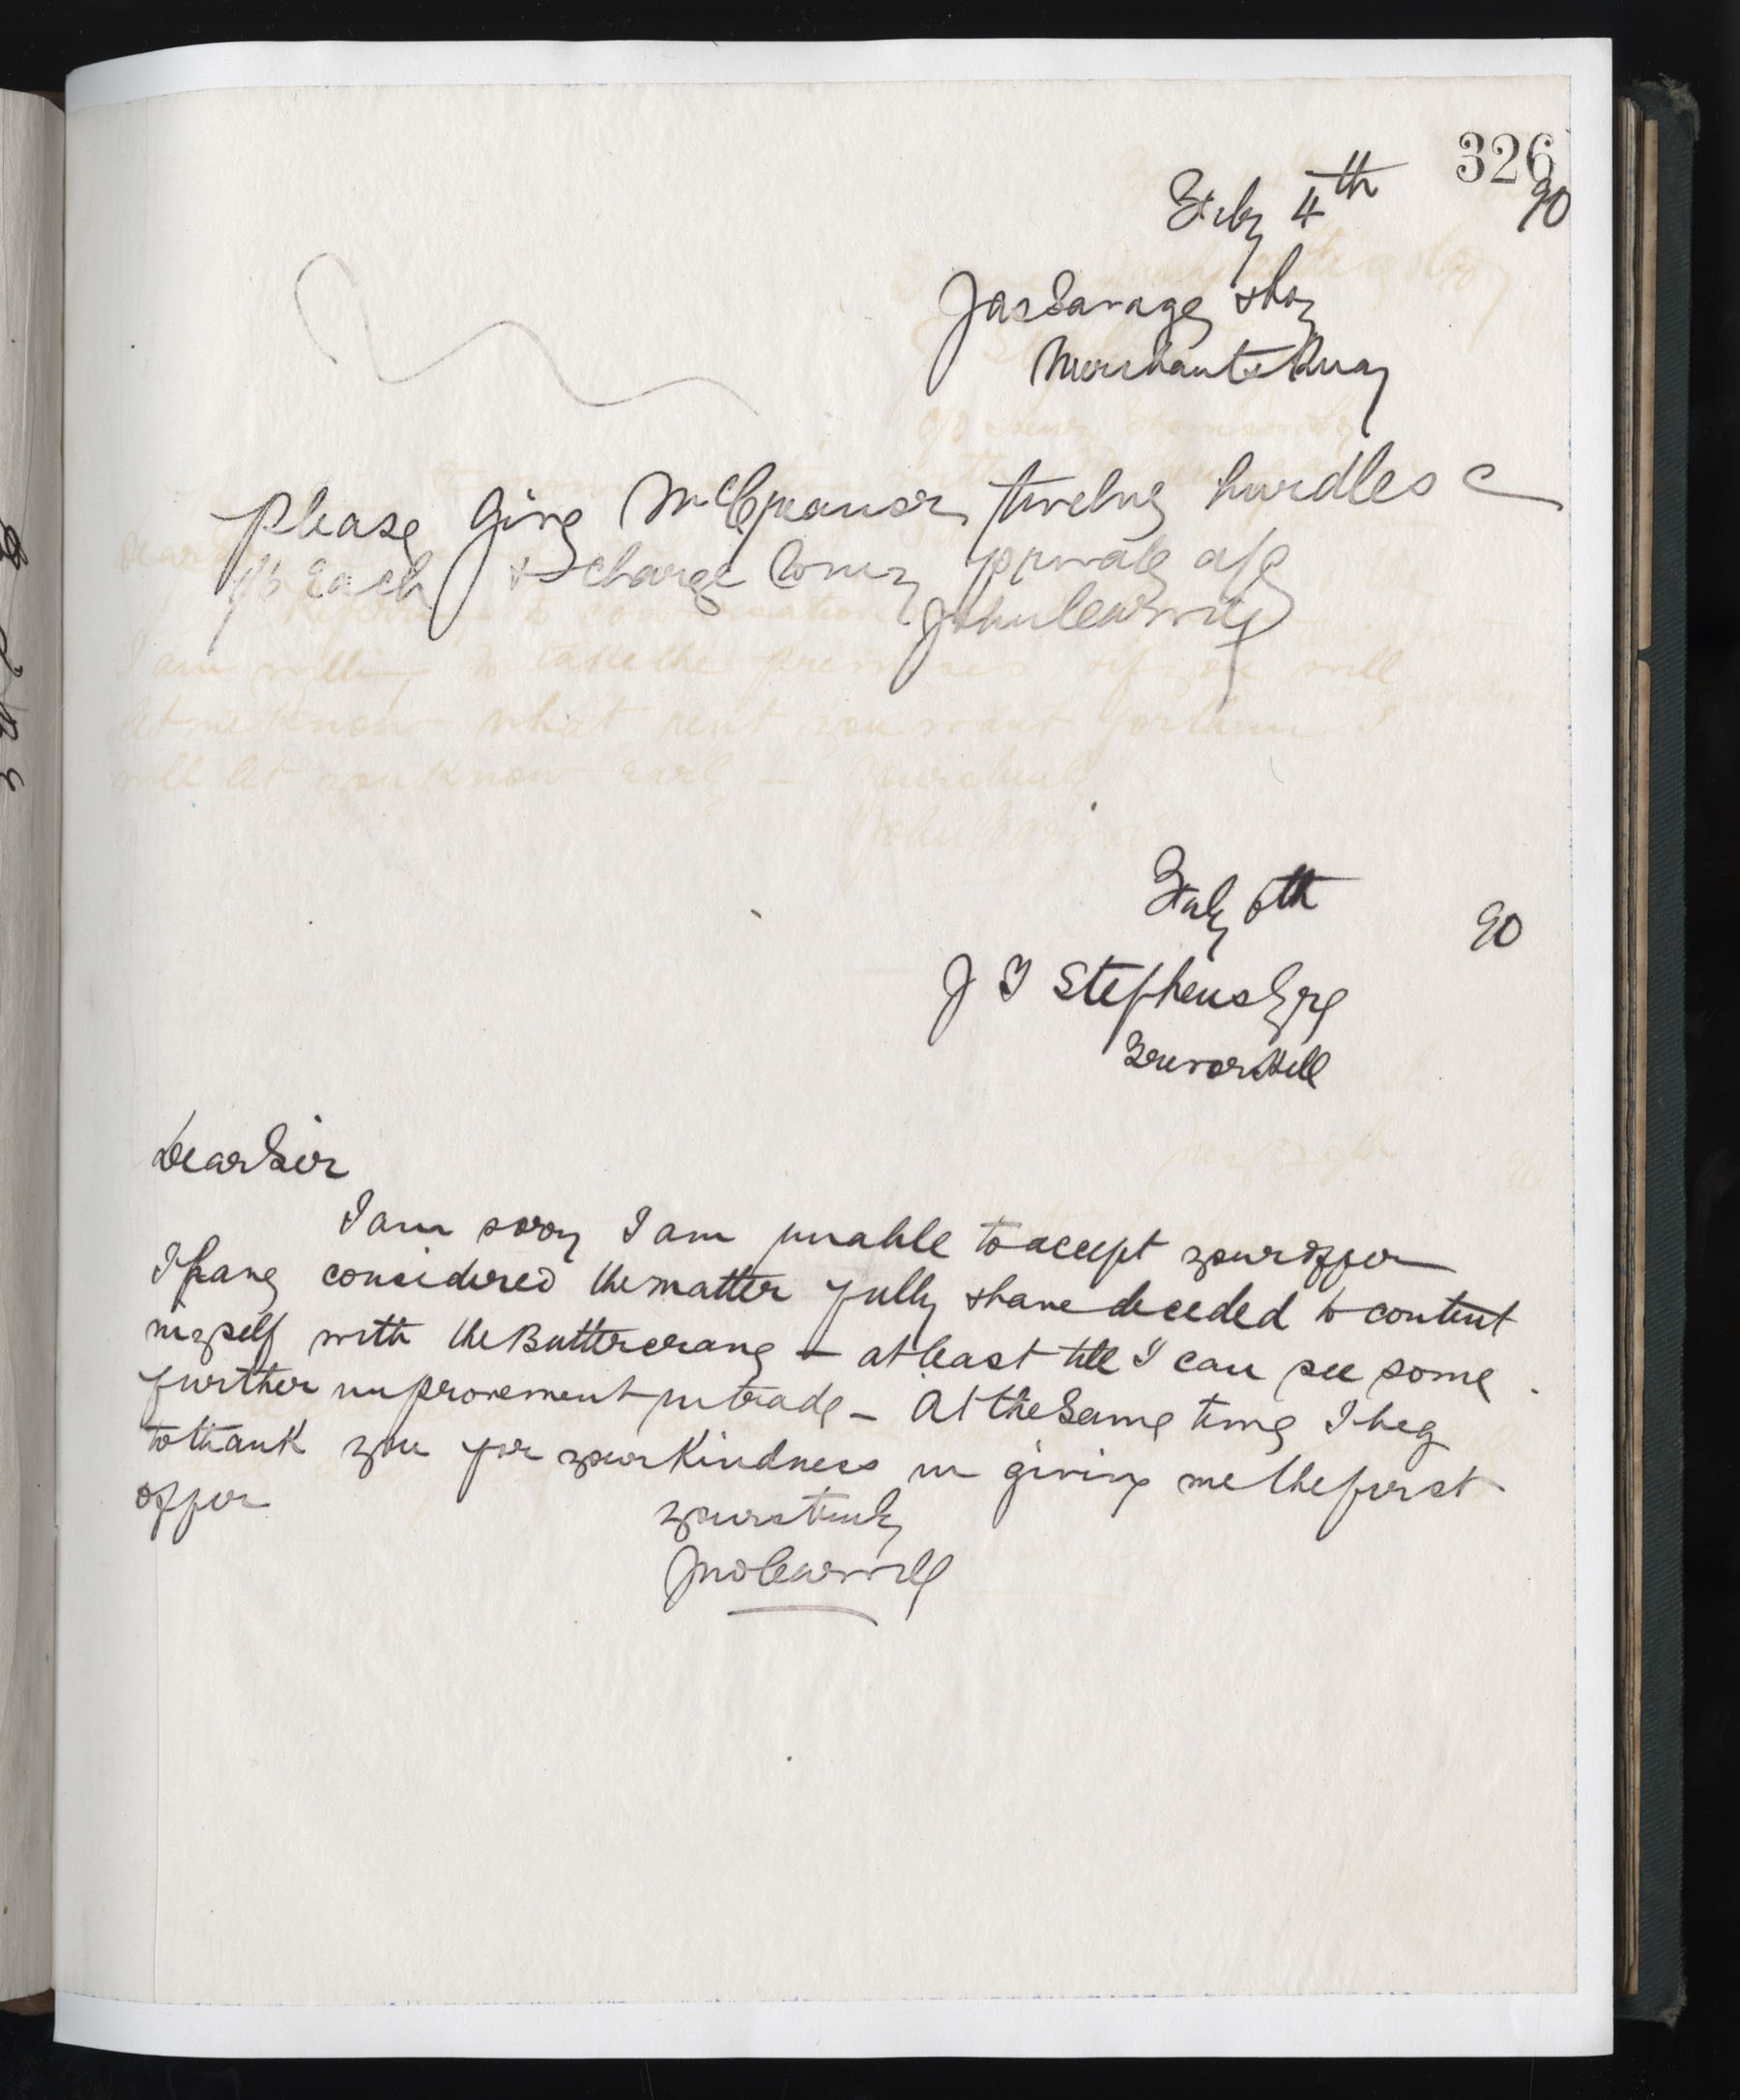 326
Feby 4th 90
Jas Savage & Coy
Merchants Quay
Please give Mr twelve hurdles @
1/6 Each & charge to my private a/c
John Carvill
Feby 6th 90
J F Stephens Esqre
Trevor Hill
Dear Sir
I am sorry I am unable to accept your offer
I have considered the matter fully & have decided to content
myself with the Buttercrane - at least till I can see some
further improvement in trade - At the same time I beg
to thank you for your kindness in giving me the first
offer
yours truly
Jno Carvill